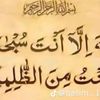 بسم الله الرحمن الرحيم
ـهَ إِلَّا أَنْتَ سُبْحٰ
نْتُ مِنَ الظّٰلِمِ